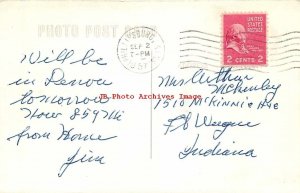 PHOTO POST
SEP 2
7-PM
1957
UNITED STATES POSTAGE
2 CENTS 2
JB Photo Archives Image
Will be
in Denver
tomorrow
Now 859 Mi
from Home
Jim
Mrs Arthur
McKinley
1510 McKinnie Ave
Ft Wayne
Indiana